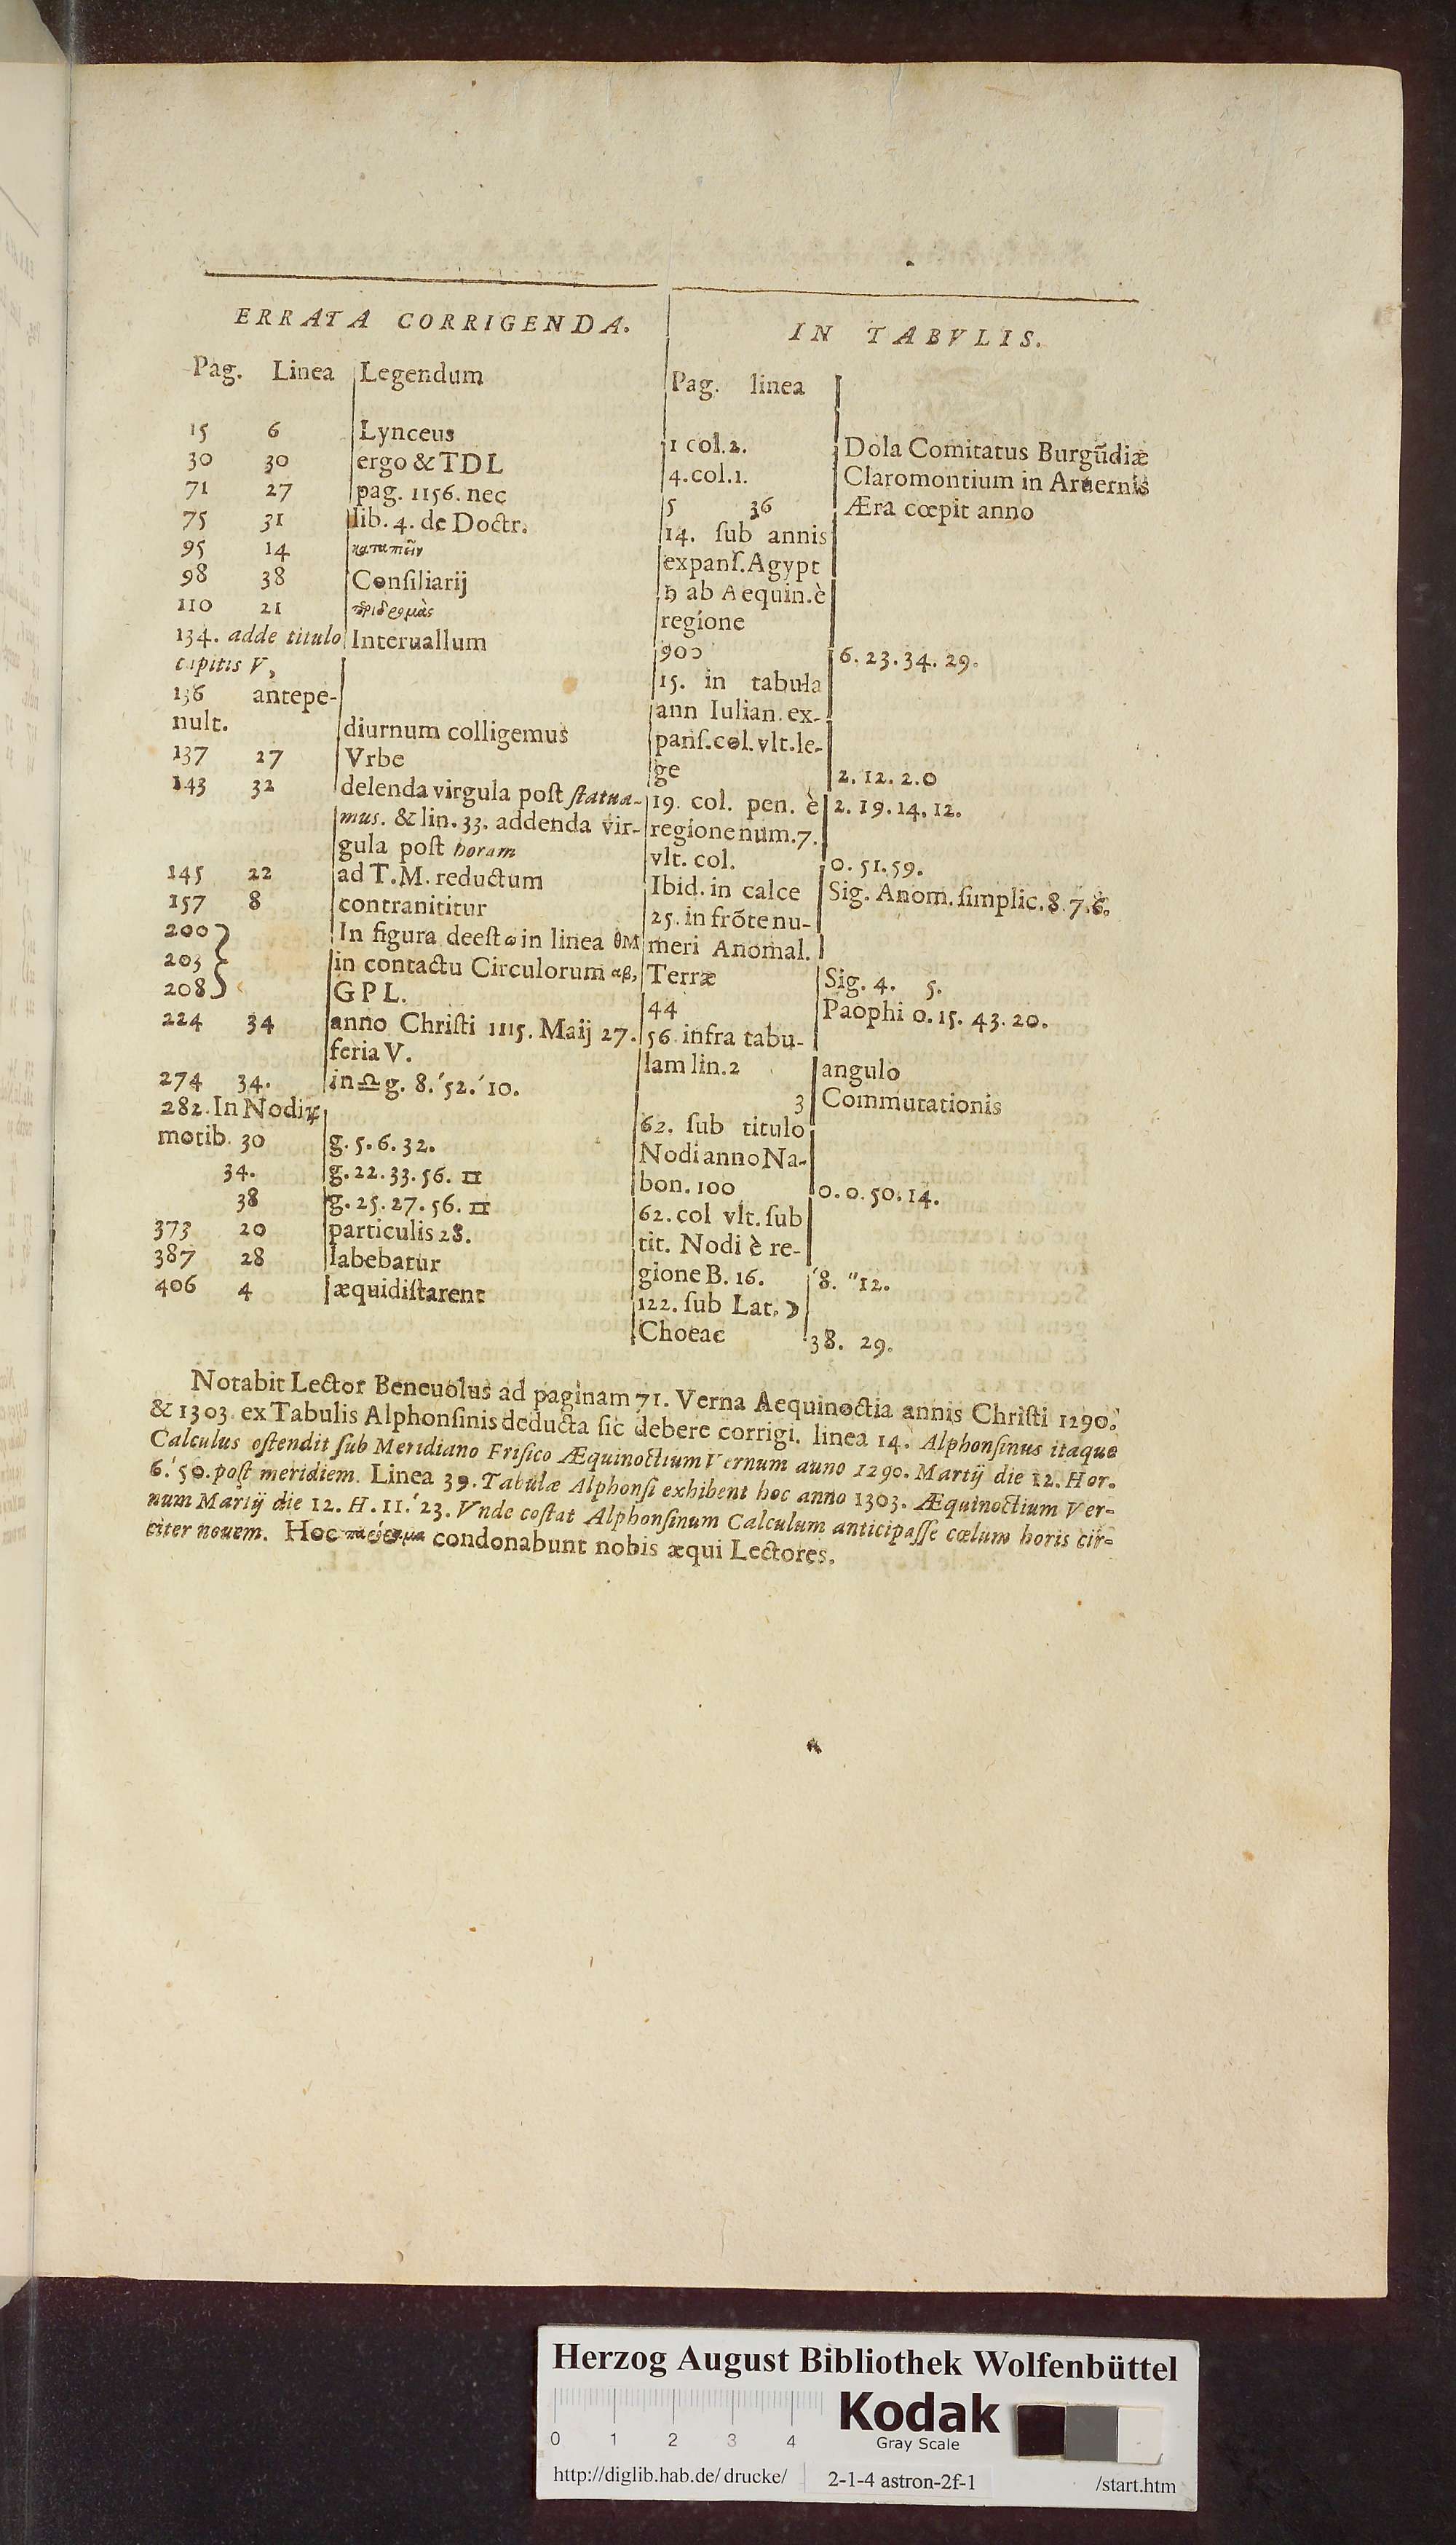 ERRATA CORRIGENDA.
Pag. Linea Legendum
15 6 Lynceus
30 30 ergo & TDL
71 27 pag. 1156. nec
75 31 lib. 4. de Doctr.
95 14
98 38 Conſiliarij
110 21
134. adde titulo Interuallum
capitis V,
136 antepe-
nult. diurnum colligemus
137 27 Vrbe
143 32 delenda virgula poſt ſtatua-
mus. & lin. 33. addenda vir-
gula poſt horam
145 22 ad T.M. reductum
157 8 contranititur
200 In figura deeſt ω in linea θM
203 in contactu Circulorum αβ,
208 G P L.
224 34 anno Chriſti 1115. Maij 27.
feria V.
274 34. in ♎ g. 8.′52.′10.
282. In Nodi ♃
motib. 30 g. 5. 6. 32.
34. g. 22. 33. 56. ♊
38 g. 25. 27. 56. ♊
373 20 particulis 28.
387 28 labebatur
406 4 æquidiſtarent
IN TABVLIS.
Pag. linea
1 col. 2. Dola Comitatus Burgūdiæ
4. col. 1. Claromontium in Aruernis
5 36 Æra cœpit anno
14. ſub annis
expanſ. Agypt
♄ ab Aequin. è
regione
900 6. 23. 34. 29.
15. in tabula
ann Iulian. ex-
panſ. col. vlt. le-
ge 2. 12. 2. 0
19. col. pen. è 2. 19. 14. 12.
regione num. 7.
vlt. col. 0. 51. 59.
Ibid. in calce Sig. Anom. ſimplic. 8. 7. 6.
25. in frōte nu-
meri Anomal.
Terræ Sig. 4. 5.
44 Paophi 0. 15. 43. 20.
56 infra tabu-
lam lin. 2 angulo
3 Commutationis
62. ſub titulo
Nodi anno Na-
bon. 100 0. 0. 50. 14.
62. col vlt. ſub
tit. Nodi è re-
gione B. 16. ′8. ″12.
122. ſub Lat. ☽
Choeac 38. 29.
Notabit Lector Beneuolus ad paginam 71. Verna Aequinoctia annis Chriſti 1290.
& 1303. ex Tabulis Alphonſinis deducta ſic debere corrigi. linea 14. Alphonſinus itaque
Calculus oſtendit ſub Meridiano Friſico Æquinoctium Vernum anno 1290. Martij die 12. Hor.
6.′50. poſt meridiem. Linea 39. Tabulæ Alphonſi exhibent hoc anno 1303. Æquinoctium Ver-
num Martij die 12. H. 11.′23. Vnde coſtat Alphonſinum Calculum anticipaſſe cœlum horis cir-
citer nouem. Hoc condonabunt nobis æqui Lectores.
Herzog August Bibliothek Wolfenbüttel
Kodak
Gray Scale
0 1 2 3 4
http://diglib.hab.de/drucke/ 2-1-4 astron-2f-1 /start.htm